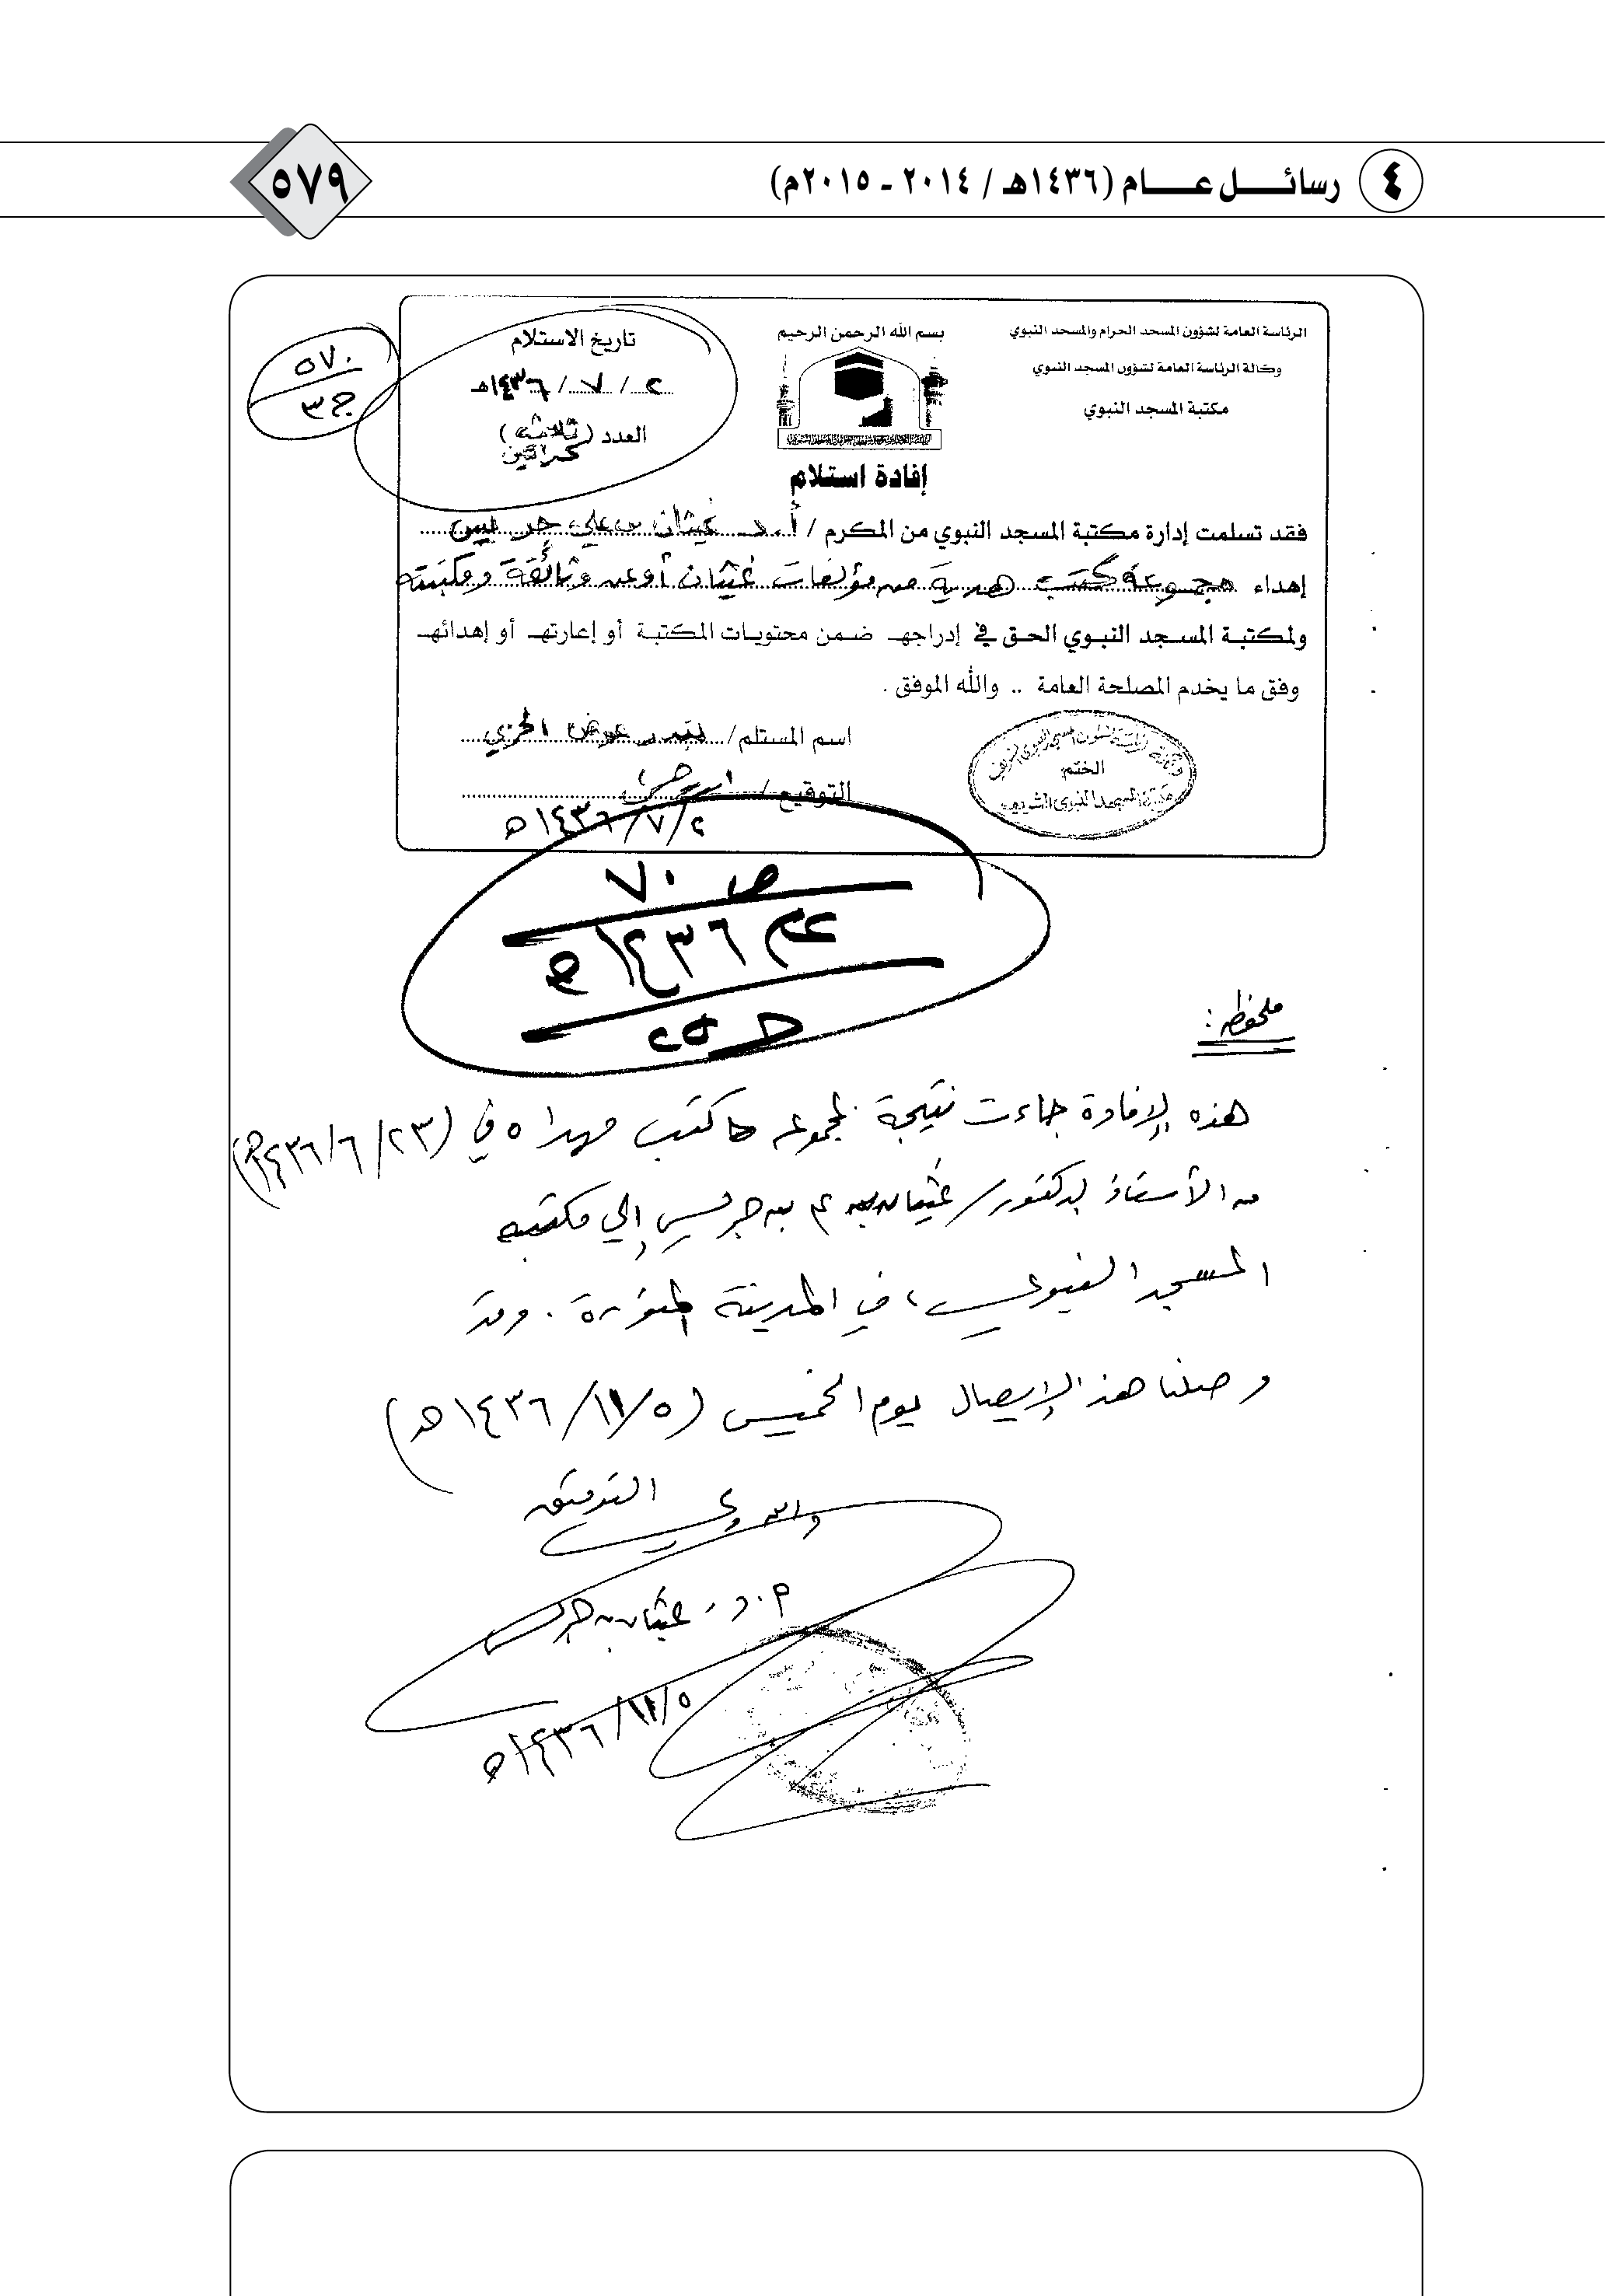 ٤ رسائل عام (١٤٣٦هـ / ٢٠١٤ - ٢٠١٥م)
٥٧٩
الرئاسة العامة لشؤون المسجد الحرام والمسجد النبوي
وكالة الرئاسة العامة لشؤون المسجد النبوي
مكتبة المسجد النبوي
بسم الله الرحمن الرحيم
تاريخ الاستلام
٢ / ٧ / ١٤٣٦هـ
العدد (ثلاثة)
كراتين
٥٧٠
ج٣
إفادة استلام
فقد تسلمت إدارة مكتبة المسجد النبوي من المكرم / أ.د. غيثان بن علي جريس
إهداء مجموعة كتب هدية من مؤلفات غيثان أو عن وثائقه ومكتبته
ولمكتبة المسجد النبوي الحق في إدراجهـ ضمن محتويات المكتبة أو إعارتهـ أو إهدائهـ
وفق ما يخدم المصلحة العامة .. والله الموفق .
اسم المستلم / عوض الحربي
التوقيع /
٢/٧/١٤٣٦هـ
الختم
مكتبة المسجد النبوي الشريف
ص ٧٠
عام ١٤٣٦هـ
ملحوظة :
هذه الإفادة جاءت نتيجة لمجموعة كتب مهداه في (٢٣/٦/١٤٣٦هـ)
من الأستاذ الدكتور/ غيثان بن علي بن جريس إلى مكتبة
المسجد النبوي، في المدينة المنورة. وقد
وصلنا هذا الإيصال يوم الخميس (٥/١١/١٤٣٦هـ)
والله ولي التوفيق
أ.د. غيثان بن جريس
٥/١١/١٤٣٦هـ